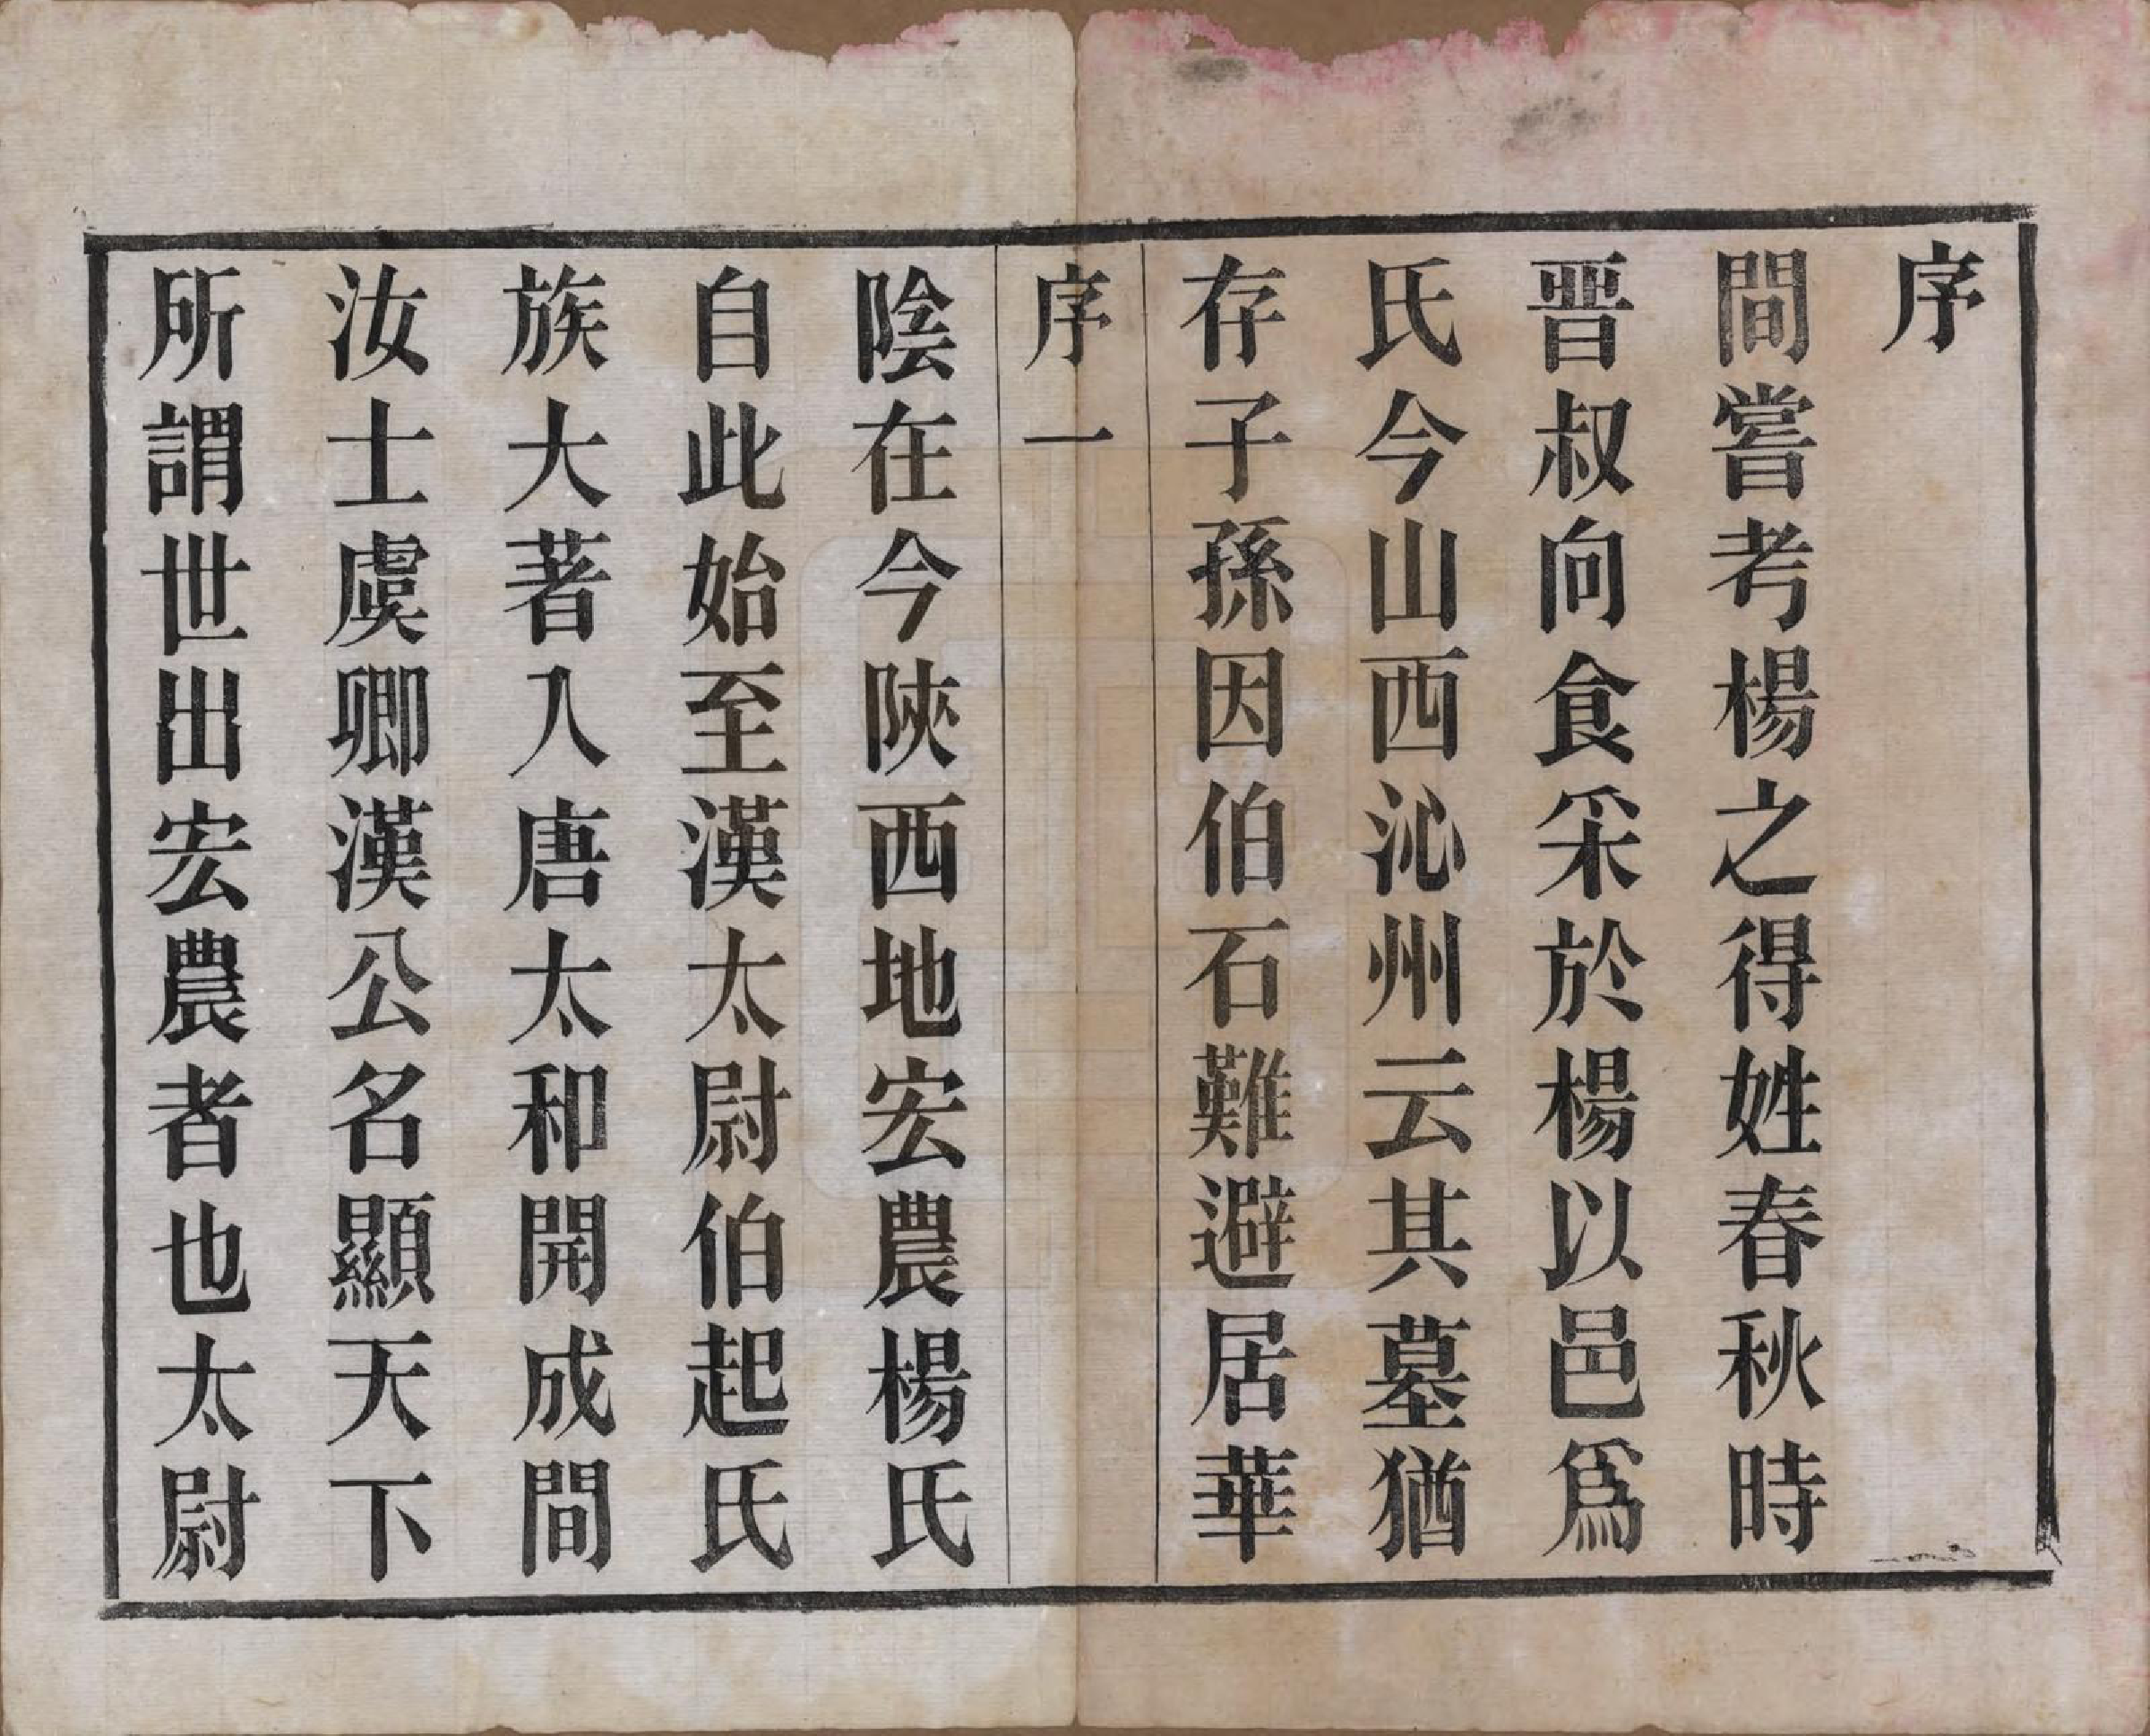 序
間嘗考楊之得姓春秋時
晋叔向食采於楊以邑爲
氏今山西沁州云其墓猶
存子孫因伯石難避居華
序一
陰在今陝西地宏農楊氏
自此始至漢太尉伯起氏
族大著入唐太和開成間
汝士虞卿漢公名顯天下
所謂世出宏農者也太尉